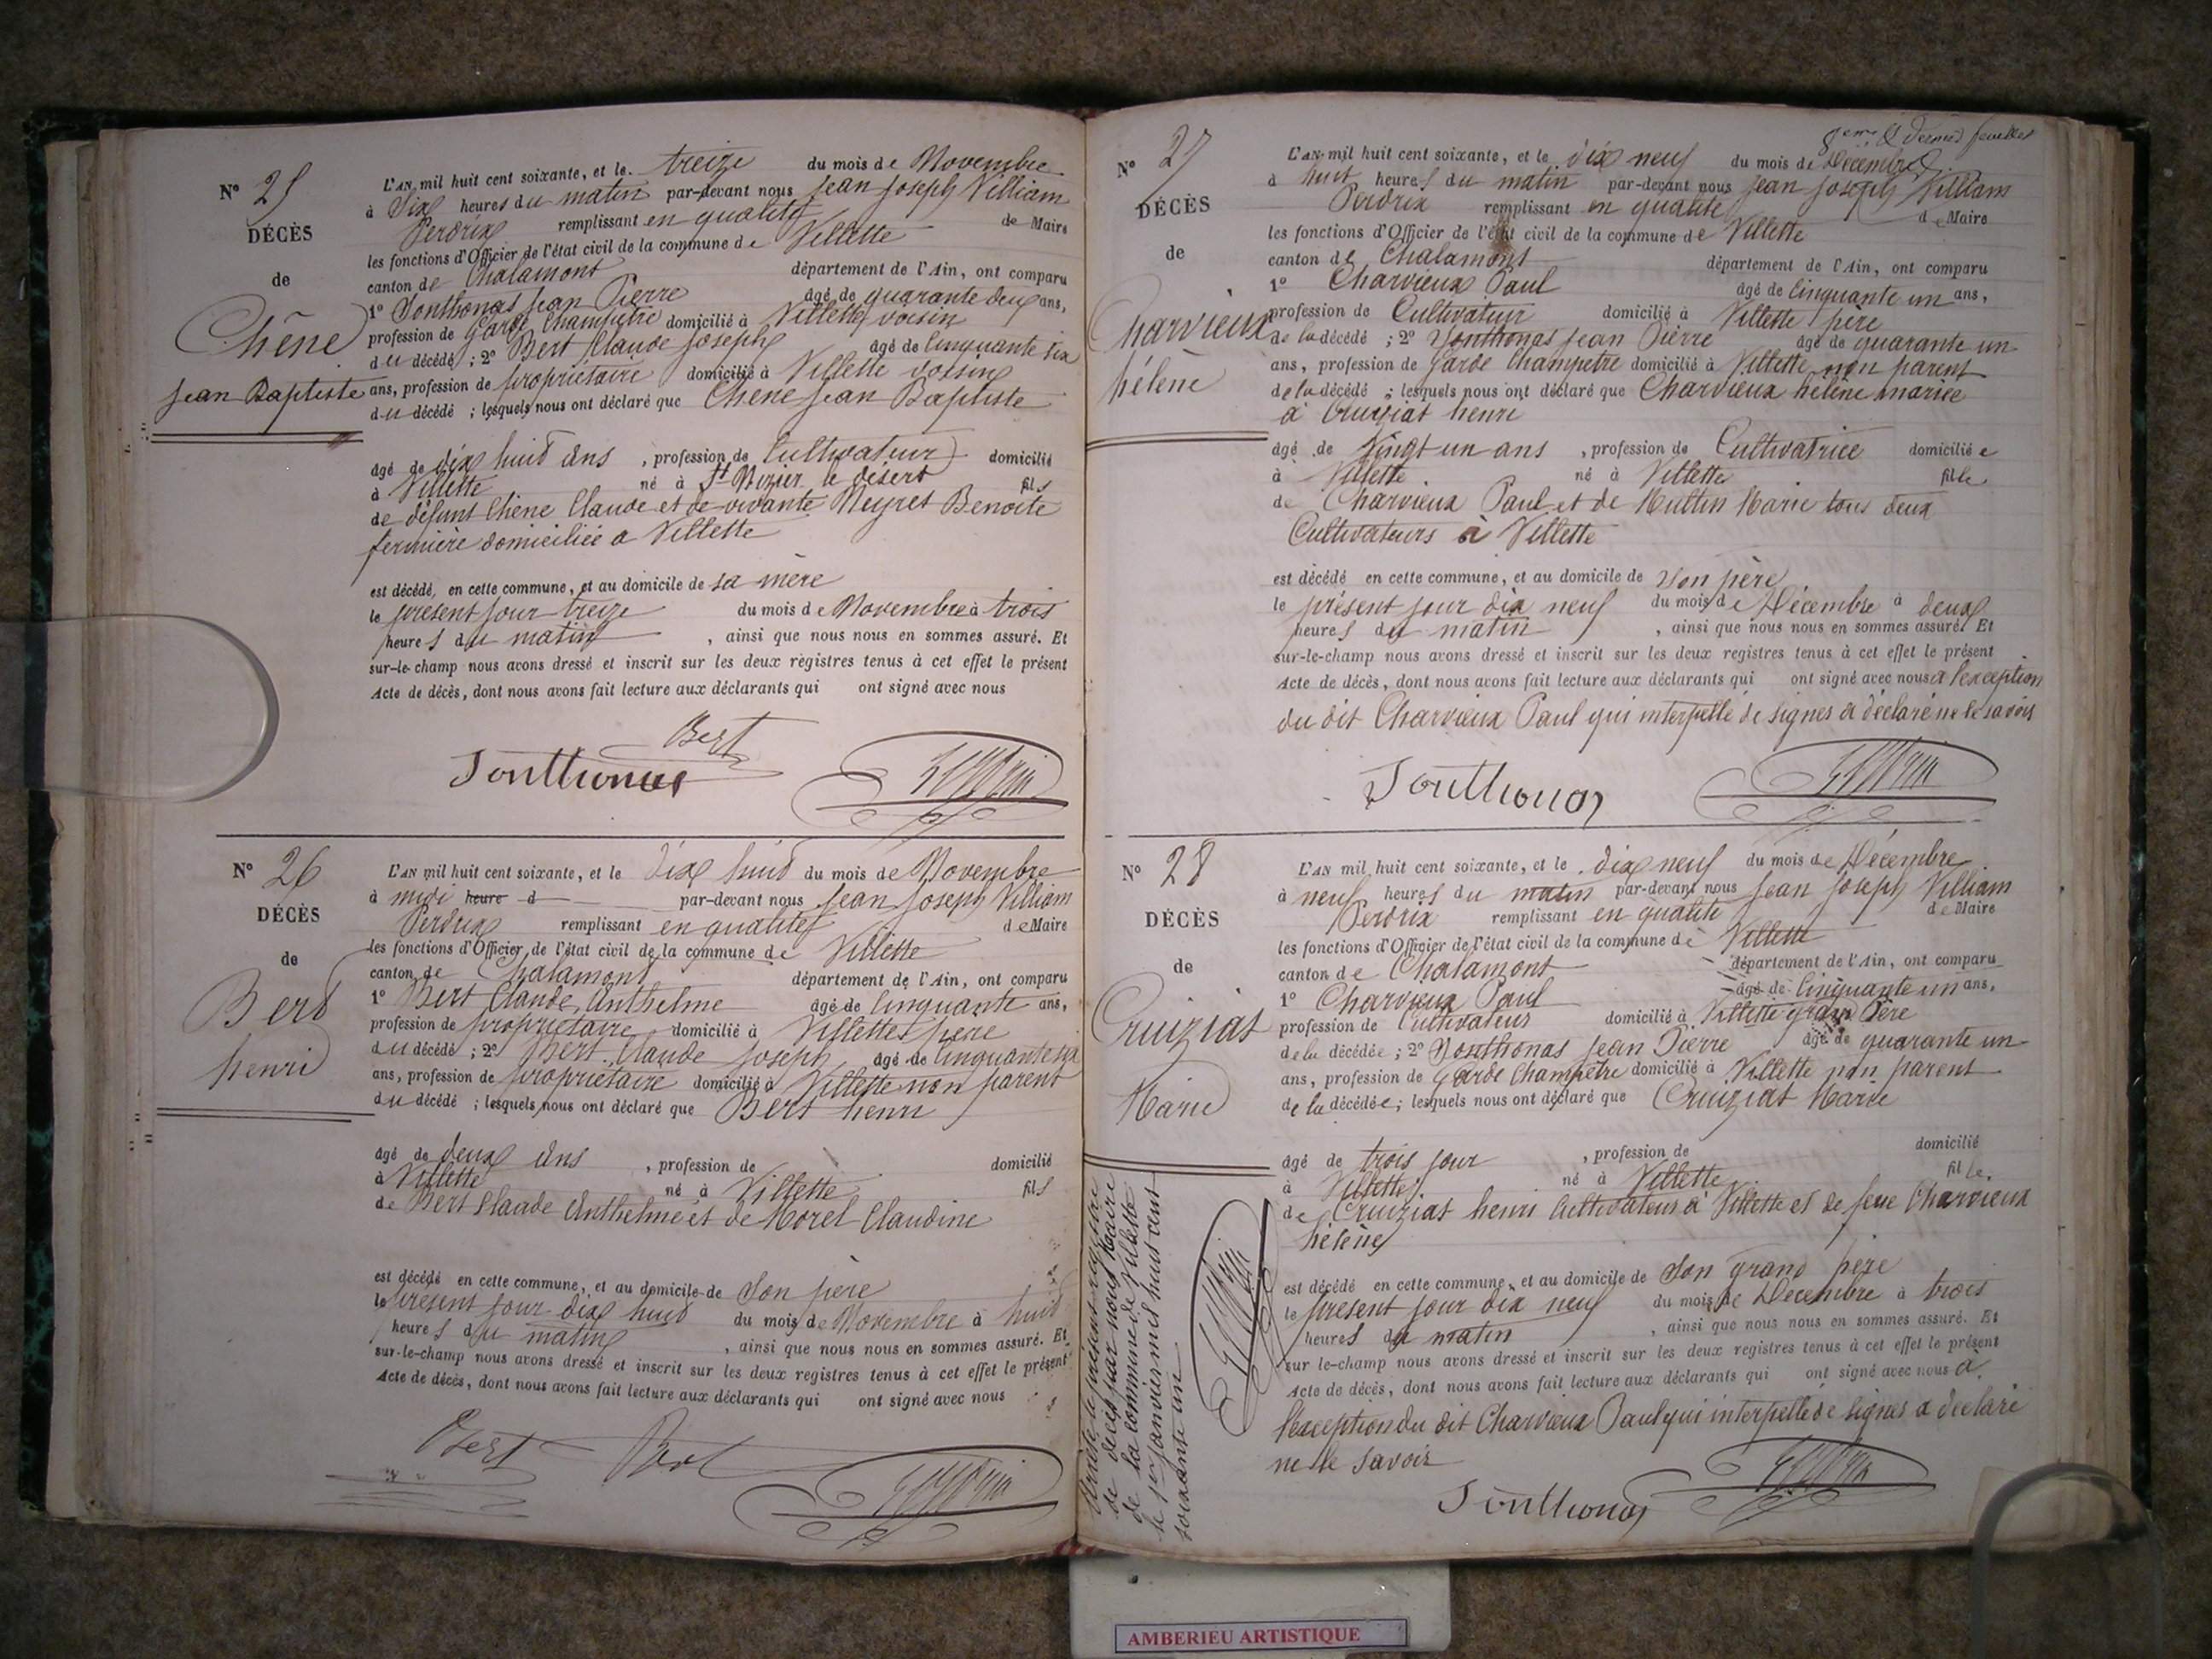 N° 25
DÉCÈS
de
Chêne
Jean Baptiste
L'AN mil huit cent soixante, et le treize du mois de Novembre
à Six heures du matin par-devant nous Jean Joseph Villiam
Perdrix remplissant en qualité de Maire
les fonctions d'Officier de l'état civil de la commune de Villette
canton de Chalamont département de l'Ain, ont comparu
1° Jonthonas Jean Pierre âgé de quarante deux ans,
profession de Garde Champêtre domicilié à Villette voisin
du décédé ; 2° Bert Claude Joseph âgé de Cinquante six
ans, profession de propriétaire domicilié à Villette voisin
du décédé ; lesquels nous ont déclaré que Chêne Jean Baptiste
âgé de dix huit ans , profession de Cultivateur domicilié
à Villette né à St Nizier le désert fils
de défunt Chêne Claude et de vivante Neyret Benoite
fermière domiciliée a Villette
est décédé, en cette commune, et au domicile de sa mère
le présent jour treize du mois de Novembre à trois
heures du matin , ainsi que nous nous en sommes assuré. Et
sur-le-champ nous avons dressé et inscrit sur les deux registres tenus à cet effet le présent
Acte de décès, dont nous avons fait lecture aux déclarants qui ont signé avec nous
Bert
Jonthonas
N° 26
DÉCÈS
de
Bert
henri
L'AN mil huit cent soixante, et le dix huit du mois de Novembre
à midi heure d par-devant nous Jean Joseph Villiam
Perdrix remplissant en qualité de Maire
les fonctions d'Officier de l'état civil de la commune de Villette
canton de Chalamont département de l'Ain, ont comparu
1° Bert Claude Anthelme âgé de Cinquante ans,
profession de propriétaire domicilié à Villette père
du décédé ; 2° Bert Claude Joseph âgé de Cinquante six
ans, profession de propriétaire domicilié à Villette non parent
du décédé ; lesquels nous ont déclaré que Bert henri
âgé de deux ans , profession de domicilié
à Villette né à Villette fils
de Bert Claude Anthelme et de Morel Claudine
est décédé en cette commune, et au domicile de Son père
le présent jour dix huit du mois de Novembre à huit
heures du matin , ainsi que nous nous en sommes assuré. Et
sur-le-champ nous avons dressé et inscrit sur les deux registres tenus à cet effet le présent
Acte de décès, dont nous avons fait lecture aux déclarants qui ont signé avec nous
Bert Bert
8eme & dernier feuillet
N° 27
DÉCÈS
de
Charvieux
hélène
L'AN mil huit cent soixante, et le dix neuf du mois de Décembre
à huit heures du matin par-devant nous Jean Joseph Villiam
Perdrix remplissant en qualité de Maire
les fonctions d'Officier de l'état civil de la commune de Villette
canton de Chalamont département de l'Ain, ont comparu
1° Charvieux Paul âgé de Cinquante un ans,
profession de Cultivateur domicilié à Villette père
de la décédé ; 2° Jonthonas Jean Pierre âgé de quarante un
ans, profession de Garde Champetre domicilié à Villette non parent
de la décédé ; lesquels nous ont déclaré que Charvieux hélène mariée
à Cruiziat henri
âgé de Vingt un ans , profession de Cultivatrice domicilié e
à Villette né à Villette fille
de Charvieux Paul et de Muttin Marie tous deux
Cultivateurs à Villette
est décédé en cette commune, et au domicile de Son père
le présent jour dix neuf du mois de Décembre à deux
heures du matin , ainsi que nous nous en sommes assuré. Et
sur-le-champ nous avons dressé et inscrit sur les deux registres tenus à cet effet le présent
Acte de décès, dont nous avons fait lecture aux déclarants qui ont signé avec nous à l'exception
du dit Charvieux Paul qui interpellé de signer a déclaré ne le savoir
Jonthonas
N° 28
DÉCÈS
de
Cruiziat
Marie
L'AN mil huit cent soixante, et le dix neuf du mois de Décembre
à neuf heures du matin par-devant nous Jean Joseph Villiam
Perdrix remplissant en qualité de Maire
les fonctions d'Officier de l'état civil de la commune de Villette
canton de Chalamont département de l'Ain, ont comparu
1° Charvieux Paul âgé de Cinquante un ans,
profession de Cultivateur domicilié à Villette gran Père
de la décédée ; 2° Jonthonas Jean Pierre âgé de quarante un
ans, profession de Garde Champetre domicilié à Villette non parent
de la décédée ; lesquels nous ont déclaré que Cruiziat Marie
âgé de trois jour , profession de domicilié
à Villette né à Villette fille
de Cruiziat henri Cultivateur à Villette et de feue Charvieux
hélène
est décédé en cette commune, et au domicile de Son grand père
le présent jour dix neuf du mois de Décembre à trois
heures du matin , ainsi que nous nous en sommes assuré. Et
sur le-champ nous avons dressé et inscrit sur les deux registres tenus à cet effet le présent
Acte de décès, dont nous avons fait lecture aux déclarants qui ont signé avec nous à
l'exception du dit Charvieux Paul qui interpellé de signer a déclaré
ne le savoir
Jonthonas
Arrêté le présent registre
de décès par nous Maire
de la commune de Villette
le 1er janvier mil huit cent
soixante un
AMBERIEU ARTISTIQUE